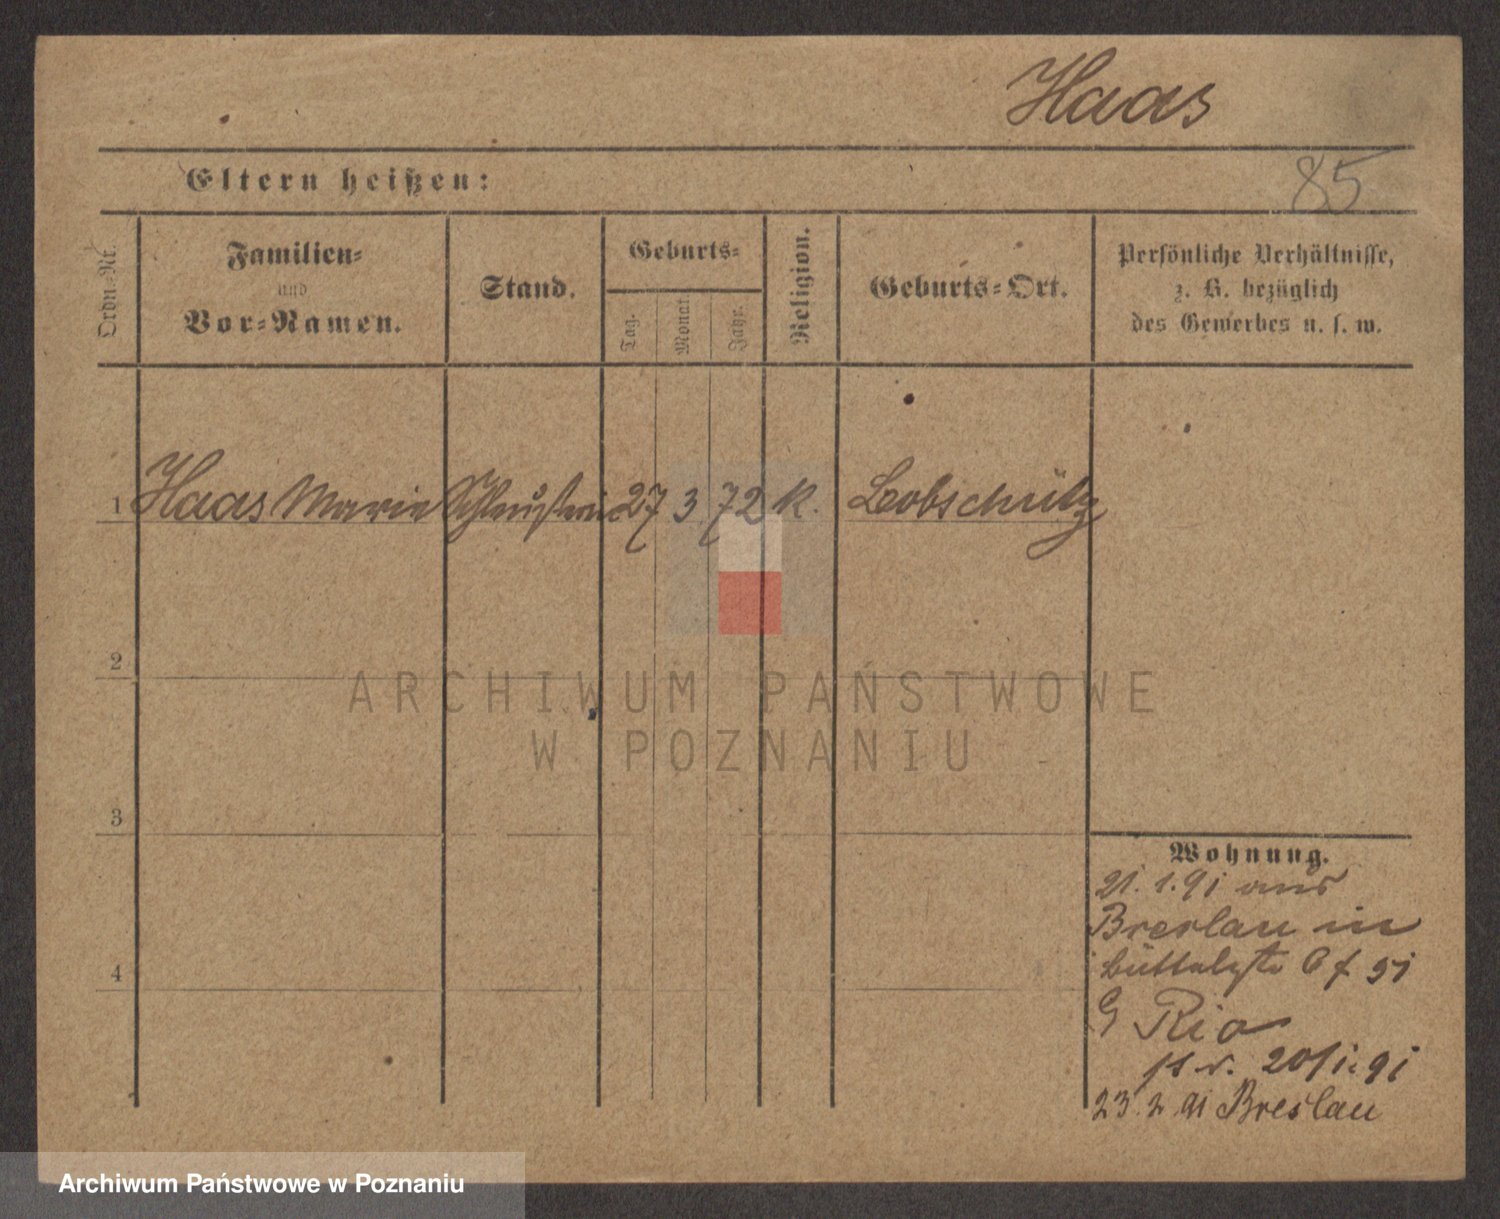 Haas
85
Eltern heißen:
Ordn.-Nr.
Familien-
und
Vor-Namen.
Stand.
Geburts-
Tag.
Monat.
Jahr.
Religion.
Geburts-Ort.
Persönliche Verhältnisse,
z. B. bezüglich
des Gewerbes u. s. w.
1 Haas Marie 27 3 72 K. Leobschütz
2
3
4
Wohnung.
21. 1. 91 aus
Breslau in
91
Rio
20/1. 91
23. 2. 91 Breslau
ARCHIWUM PAŃSTWOWE
W POZNANIU
Archiwum Państwowe w Poznaniu